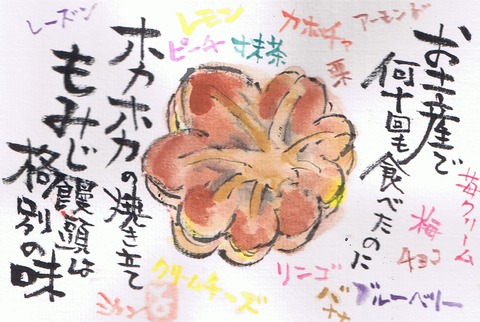 お土産で
何十回も食べたのに
ホカホカの焼き立て
もみじ饅頭は
格別の味
アーモンド
カボチャ
栗
レモン
抹茶
ピーチ
レーズン
苺クリーム
梅
チョコ
ブルーベリー
バナナ
リンゴ
クリームチーズ
ミカン